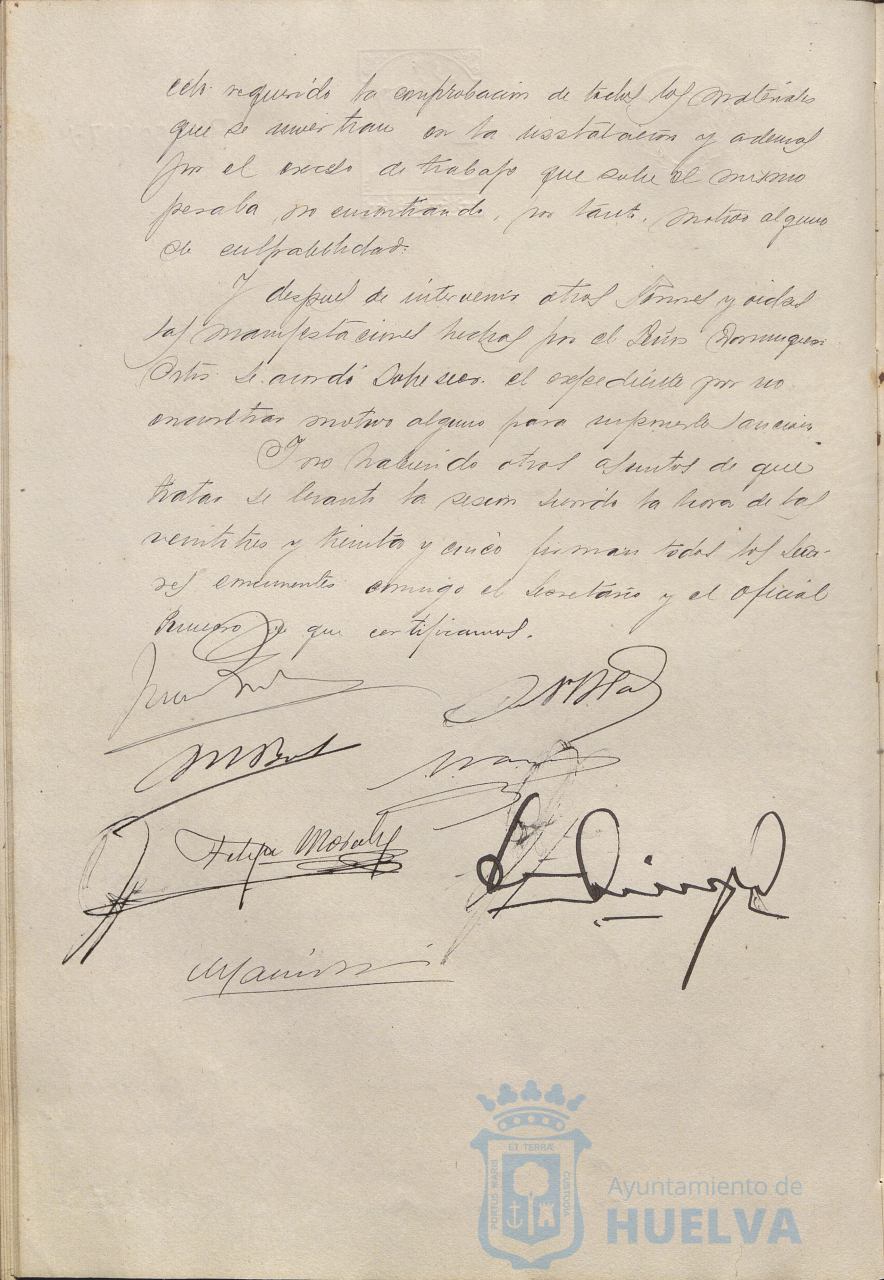 requerido la comprobacion de todos los materiales
que se invertian en la instalacion y ademas
por el exceso de trabajo que sobre el mismo
pesaba, no encontrando, por tanto, motivo alguno
de culpabilidad.
Y despues de intervenir otros Señores y oidas
las manifestaciones hechas por el Señor Dominguez
Ortiz se acordó sobreseer el expediente por no
encontrar motivo alguno para imponerle sancion.
Y no habiendo otros asuntos de que
tratar se levantó la sesion siendo la hora de las
veintitres y treinta y cinco firman todos los Seño-
res concurrentes conmigo el Secretario y el oficial
Primero de que certificamos.
Felipe Morales
PORTUS MARIS
ET TERRÆ
CUSTODIA
Ayuntamiento de
HUELVA